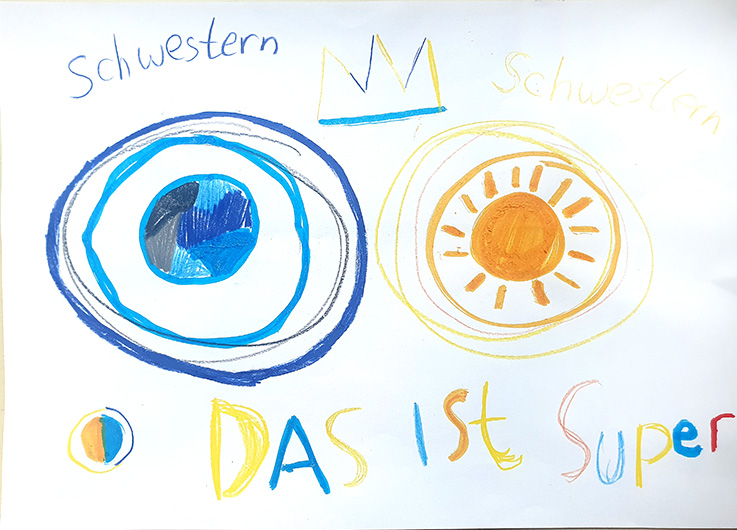 Schwestern
Schwestern
DAS ist Super